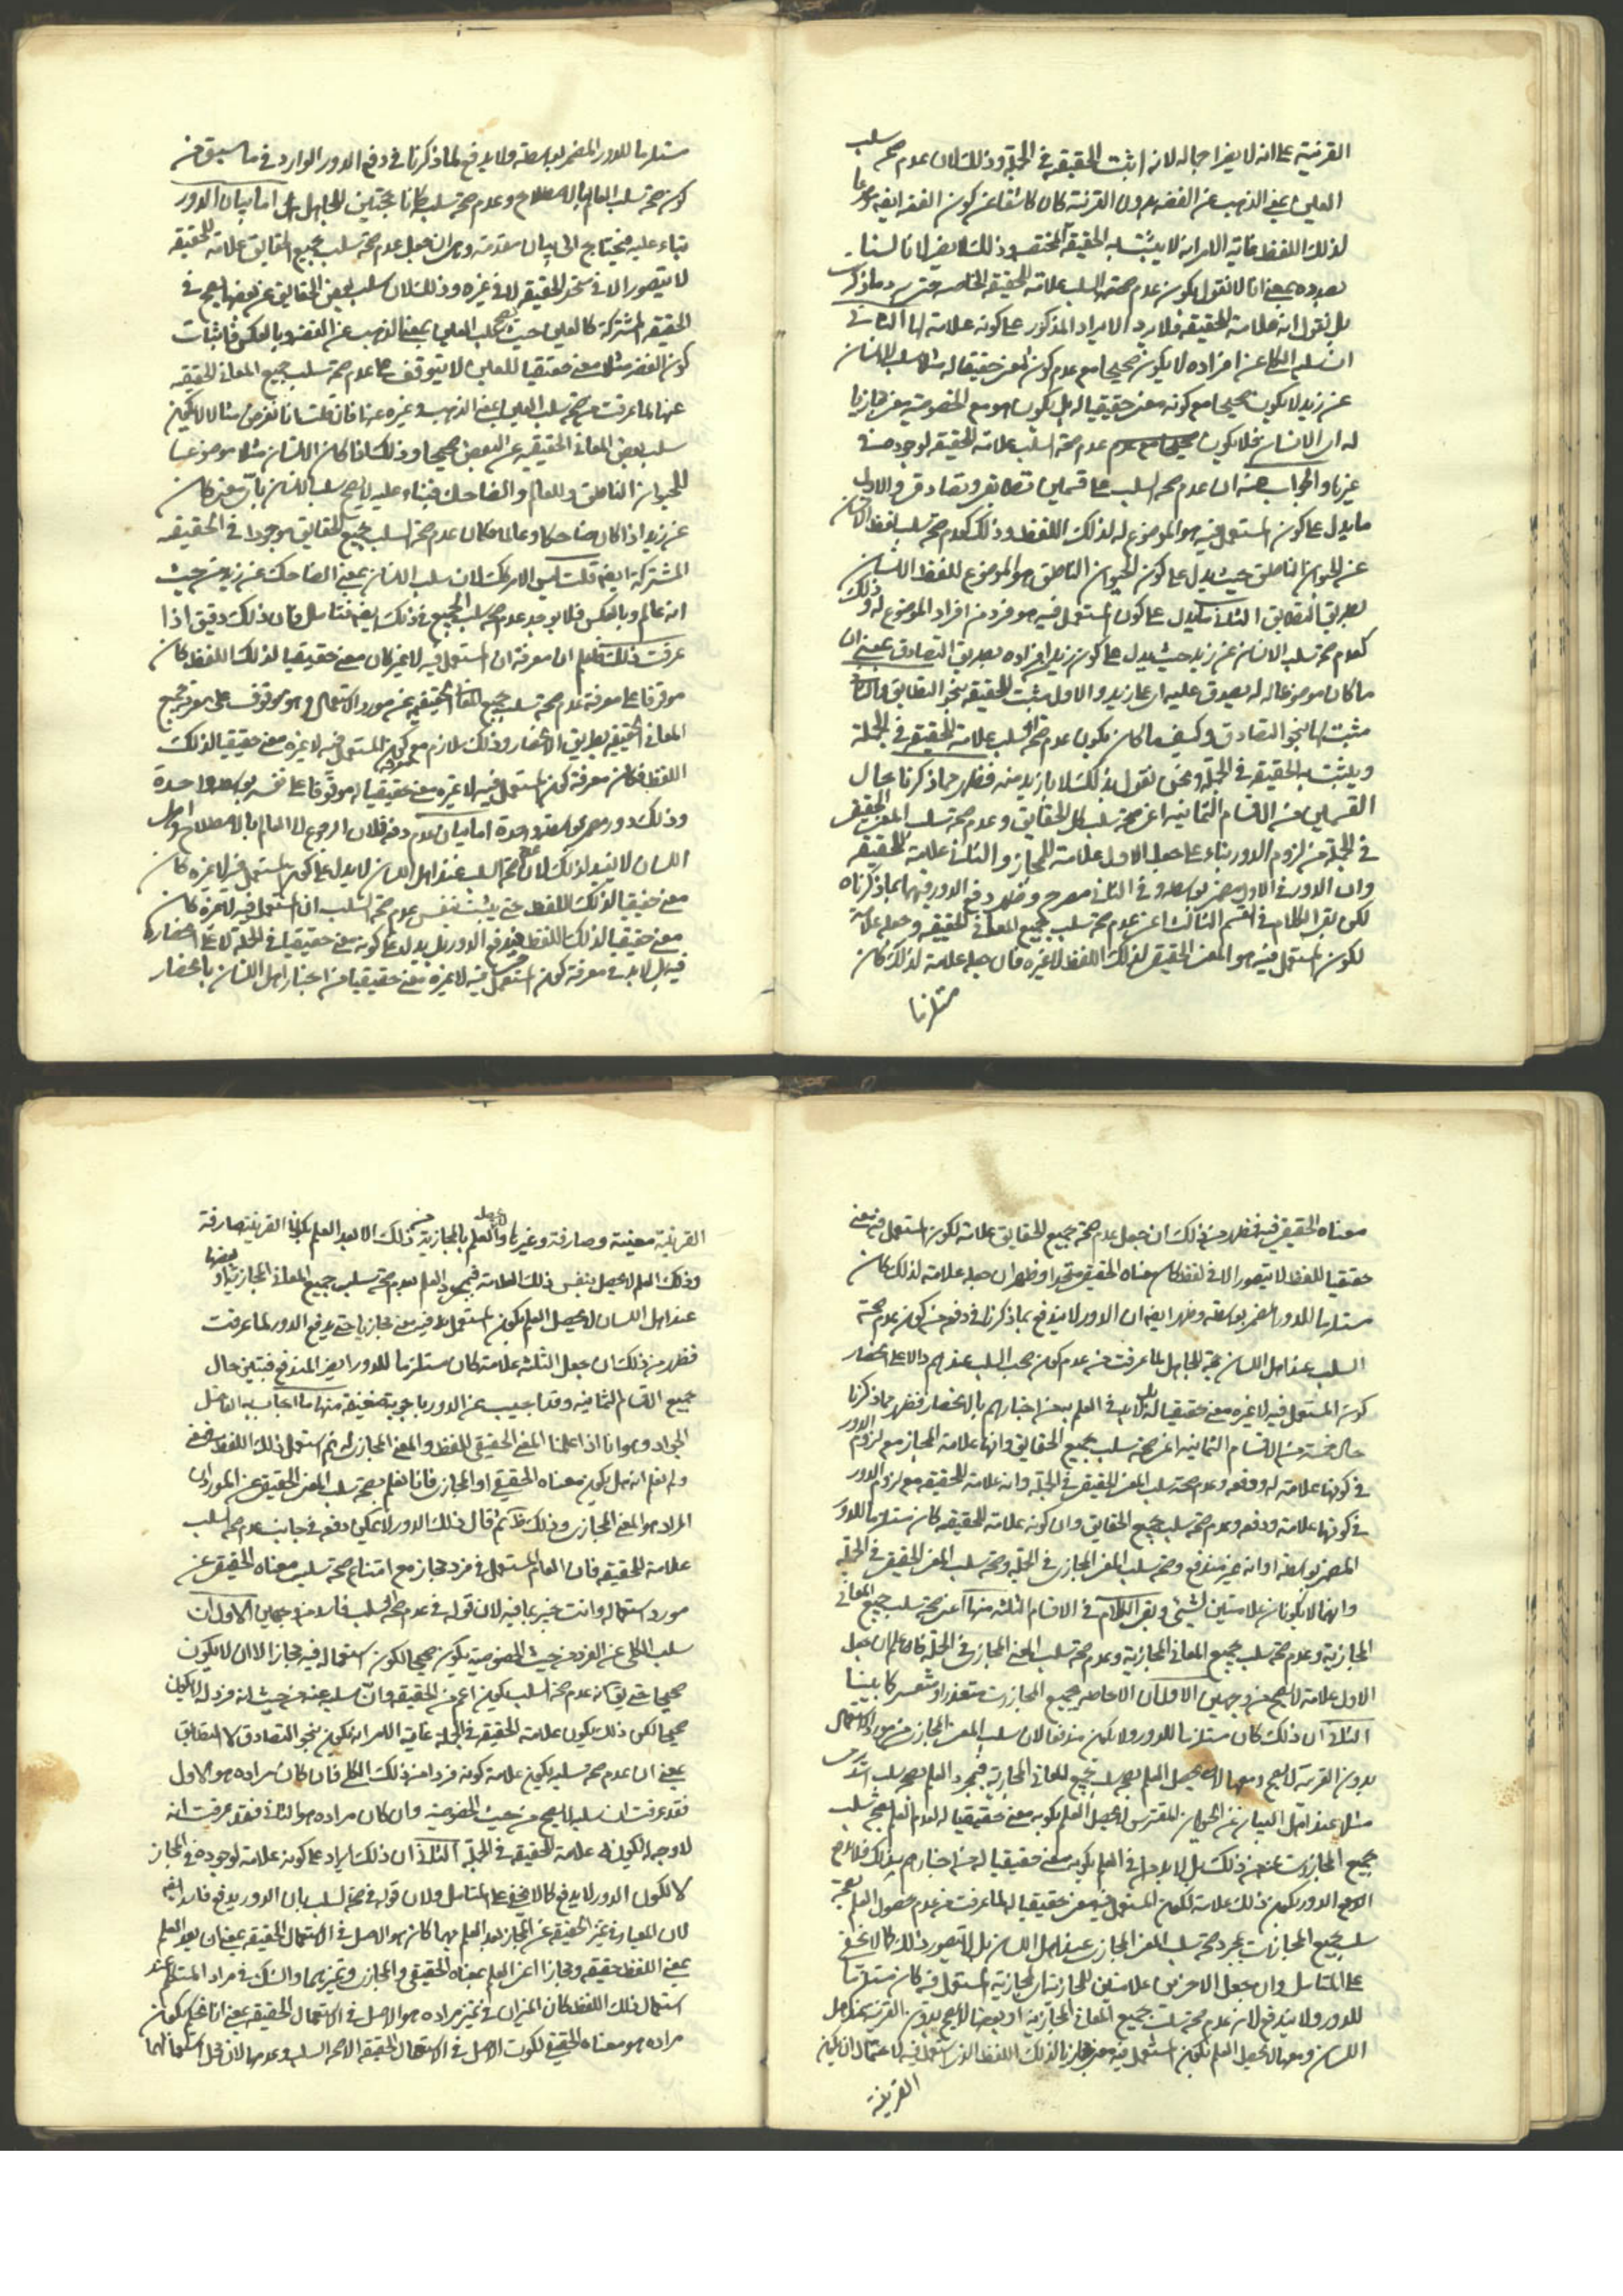 القرينة على انه لا يضر اجماله لانه اثبت الحقيقة في الجملة وذلك لان عدم صحة سلب
العين بمعنى الذهب عن الفضة بدون القرينة كان كاشفا عن كون الفضة ايضا موضوعا
لذلك اللفظ غاية الامر انه لا يثبت به الحقيقة المختصة وذلك لا يضر لانا لسنا
بصدده بمعنى انا لا نقول بكون عدم صحة السلب علامة الحقيقة الخاصة حتى يرد ما ذكر
بل نقول انه علامة الحقيقة فلا يرد الايراد المذكور على كونه علامة لها الثاني
ان سلب الكلي عن افراده لا يكون صحيحا مع عدم كون المعنى حقيقيا له مثلا سلب الانسان
عن زيد لا يكون صحيحا مع كونه معنى حقيقيا له بل يكون هو مع الخصوصية معنى مجازيا
له اي الانسان فلا يكون عدم صحة السلب علامة الحقيقة لوجوده في
غيرها والجواب عنه ان عدم صحة السلب على قسمين تطابق وتصادق والاول
ما يدل على كون المستعمل فيه هو الموضوع له لذلك اللفظ وذلك كعدم صحة سلب لفظ الانسان
عن الحيوان الناطق حيث يدل على كون الحيوان الناطق هو الموضوع للفظ الانسان
بطريق التطابق الثاني ما يدل على كون المستعمل فيه هو فرد من افراد الموضوع له وذلك
كعدم صحة سلب الانسان عن زيد حيث يدل على كون زيد افراده بطريق التصادق بمعنى ان
ما كان موضوعا له له يصدق عليه اي على زيد والاول مثبت للحقيقة بنحو التطابق والثاني
مثبت لها بنحو التصادق وكيف ما كان يكون عدم صحة السلب علامة للحقيقة في الجملة
ويثبت به الحقيقة في الجملة ونحن نقول بذلك لا بازيد منه فظهر مما ذكرنا حال
القسمين من الاقسام الثمانية اعني صحة سلب كل الحقايق وعدم صحة سلب المعنى الحقيقي
في الجملة من لزوم الدور بناء على جعل الاول علامة للمجاز والثاني علامة للحقيقة
وان الدور في الاول مضمر بواسطة وفي الثاني مصرح وظهر دفع الدور فيهما بما ذكرناه
لكن بقي الكلام في القسم الثالث اعني عدم صحة سلب جميع المعاني الحقيقية وجعله علامة
لكون المستعمل فيه هو المعنى الحقيقي لذلك اللفظ لا غيره فان جعله علامة لذلك كان
مستلزما
مستلزما للدور المضمر بواسطة ولا يدفع بما ذكرنا في دفع الدور الوارد في ما سبق من
كون صحة سلب العالم بالاصطلاح وعدم صحة سلبه كانا حجتين للجاهل اما بيان الدور
بناء عليه فيحتاج الى بيان مقدمة وهي ان جعل عدم صحة سلب جميع الحقايق علامة للحقيقة
لا يتصور الا في متحد الحقيقة لا في غيره وذلك لان سلب بعض الحقايق عن بعضها يصح في
الحقيقة المشتركة كالعين حيث يصح سلب العين بمعنى الذهب عن الفضة وبالعكس فاثبات
كون الفضة مثلا معنى حقيقيا للعين لا يتوقف على عدم صحة سلب جميع المعاني الحقيقية
عنها لما عرفت من صحة سلب العين بمعنى الذهب وغيره عنها فان قلت انا نفرض مثالا لا يكون
سلب بعض المعاني الحقيقية عن البعض صحيحا وذلك اذا كان الانسان مثلا موضوعا
للحيوان الناطق وللعالم والضاحك فبناء عليه لا يصح سلب الانسان باي معنى كان
عن زيد اذا كان ضاحكا وعالما فكان عدم صحة السلب جميع الحقايق موجودا في الحقيقة
المشتركة ايضا قلت ليس الامر كك لان سلب الانسان بمعنى الضاحك عن زيد من حيث
انه عالم وبالعكس فلا يوجد عدم صحة سلب الجميع في ذلك ايضا فتامل فان ذلك دقيق اذا
عرفت ذلك فاعلم ان معرفة ان المستعمل فيه لا غير كان معنى حقيقيا لذلك اللفظ كان
موقوفا على معرفة عدم صحة سلب جميع المعاني الحقيقية عن مورد الاستعمال وهو موقوف على معرفة جميع
المعاني الحقيقية بطريق الانحصار وذلك ملازم مع كون المستعمل فيه لا غيره معنى حقيقيا لذلك
اللفظ فكان معرفة كون المستعمل فيه لا غيره معنى حقيقيا له موقوفا على نفسه بواسطة واحدة
وذلك دور مضمر بواسطة واحدة اما بيان عدم دفعه فلان الرجوع الى العالم بالاصطلاح واهل
اللسان لا يفيد لذلك لان عدم صحة السلب عند اهل اللسان لا يدل على كون المستعمل فيه لا غيره كان
معنى حقيقيا لذلك اللفظ حتى يثبت بنفس عدم صحة السلب ان المستعمل فيه لا غيره كان
معنى حقيقيا لذلك اللفظ فيدفع الدور بل يدل على كونه معنى حقيقيا في الجملة لا على انحصاره
فيه بل لابد في معرفة كون المستعمل فيه لا غيره معنى حقيقيا من اخبار اهل اللسان بانحصار
معناه الحقيقي فيه فظهر من ذلك ان جعل عدم صحة جميع الحقايق علامة لكون المستعمل فيه معنى
حقيقيا للفظ لا يتصور الا في لفظ كان معناه الحقيقي متحدا وظهر ان جعله علامة لذلك كان
مستلزما للدور المضمر بواسطة وظهر ايضا ان الدور لا يندفع بما ذكرنا في دفعه من كون عدم صحة
السلب عند اهل اللسان حجة للجاهل لما عرفت من عدم كون السلب عندهم دالا على انحصار
كون المستعمل فيه لا غيره معنى حقيقيا له بل لابد في العلم به من اخبارهم بالانحصار فظهر مما ذكرنا
حال خمسة من الاقسام الثمانية اعني صحة سلب جميع الحقايق وانها علامة المجاز مع لزوم الدور
في كونها علامة له ودفعه وعدم صحة سلب المعنى الحقيقي في الجملة وانه علامة للحقيقة مع لزوم الدور
في كونها علامة ودفعه وعدم صحة سلب جميع الحقايق وان كونه علامة للحقيقة كان مستلزما للدور
المضمر بواسطة وانه غير مندفع وصحة سلب المعنى المجازي في الجملة وصحة سلب المعنى الحقيقي في الجملة
وانهما لا يكونان علامتين لشيء وبقي الكلام في الاقسام الثلاثة منها اعني صحة سلب جميع المعاني
المجازية وعدم صحة سلب جميع المعاني المجازية وعدم صحة سلب المعنى المجازي في الجملة فاعلم ان جعل
الاول علامة لا يصح من وجهين الاول ان الاحاطة بجميع المجازات متعذر او متعسر كما بينا
الثاني ان ذلك كان مستلزما للدور ولا يكون مندفعا لان سلب المعنى المجازي عن مورد الاستعمال
بدون القرينة لا يصح ومعها لا يحصل العلم بصحة سلب جميع المعاني المجازية فبمجرد العلم بصحة سلب اسد
مثلا عند اهل البيان عن الحيوان المفترس لا يحصل العلم بكونه معنى حقيقيا له لعدم العلم بصحة سلب
جميع المجازات عنه من ذلك بل لابد في العلم بكونه معنى حقيقيا له من اخبارهم بذلك فلا يمكن
الدفع الدور بكون ذلك علامة لكون المستعمل فيه معنى حقيقيا له لما عرفت من عدم حصول العلم بصحة
سلب جميع المجازات بمجرد صحة سلب المعنى المجازي عند اهل اللسان بل لا يتصور ذلك كما لا يخفى
على المتامل وان جعل الاخرين علامتين للمجاز لمجازية المستعمل فيه كان مستلزما
للدور ولا يندفع لان عدم صحة سلب جميع المعاني المجازية او بعضها لا يصح بدون القرينة عند اهل
اللسان ومعها لا يحصل العلم بكون المستعمل فيه معنى مجازيا لذلك اللفظ الذي استعمل فيه لاحتمال ان يكون
القرينة
القرينة معينة وصارفة وغيرها والعلم بالمجازية من ذلك الا بعد العلم بكون القرينة صارفة
وذلك العلم لا يحصل بنفس ذلك العلامة فبمجرد العلم بعدم صحة سلب جميع المعاني المجازية او بعضها
عند اهل اللسان لا يحصل العلم بكون المستعمل فيه معنى مجازيا حتى يدفع الدور لما عرفت
فظهر من ذلك ان جعل الثلثة علامة كان مستلزما للدور الغير المندفع فتبين حال
جميع الاقسام الثمانية وقد اجيب عن الدور باجوبة ضعيفة منها ما اجاب به الفاضل
الجواد وهو انا اذا علمنا المعنى الحقيقي للفظ والمعنى المجازي له ثم استعمل ذلك اللفظ في معنى
ولم نعلم انه هل يكون معناه الحقيقي او المجازي فانا نعلم بصحة سلب المعنى الحقيقي عن المورد ان
المراد هو المعنى المجازي وذلك ظ ثم قال ذلك الدور لا يمكن دفعه في جانب عدم صحة السلب
علامة للحقيقة فان العام المستعمل في فرد مجاز مع امتناع صحة سلب معناه الحقيقي عن
مورد استعماله وانت خبير بما فيه لان قوله في عدم صحة السلب فاسد من وجهين الاول ان
سلب الكلي عن الفرد من حيث الخصوصية يكون صحيحا لكون استعماله فيه مجازا لا ان لا يكون
صحيحا حتى يق انه عدم صحة السلب يكون اعم من الحقيقة وان سلبه عنه من حيث انه فرد له لا يكون
صحيحا لكن ذلك يكون علامة الحقيقة في الجملة غاية الامر انه يكون بنحو التصادق لا التطابق
بمعنى ان عدم صحة سلبه يكون علامة كونه فردا من ذلك الكلي فان كان مراده هو الاول
فقد عرفت ان سلبه يصح من حيث الخصوصية وان كان مراده هو الثاني فقد عرفت انه
لا وجه لكونه علامة للحقيقة في الجملة الثاني ان ذلك ايراد على كونه علامة لوجوده في المجاز
لا لكون الدور لا يدفع كما لا يخفى على المتامل ولان قوله في صحة السلب بان الدور يدفع فاسد ايضا
لان المعيار في تميز الحقيقة عن المجاز بعد العلم بهما كان هو الاصل في الاستعمال الحقيقة بمعنى ان بعد العلم
بمعنى اللفظ حقيقة ومجازا اعني العلم بمعناه الحقيقي والمجازي وتميزهما والشك في مراد المتكلم عند
استعمال ذلك اللفظ كان الميزان في تميز مراده هو الاصل في الاستعمال الحقيقة بمعنى انا نحكم بكون
مراده هو معناه الحقيقي لكون الاصل في الاستعمال الحقيقة لا صحة السلب وعدمها لان محل استعمالهما